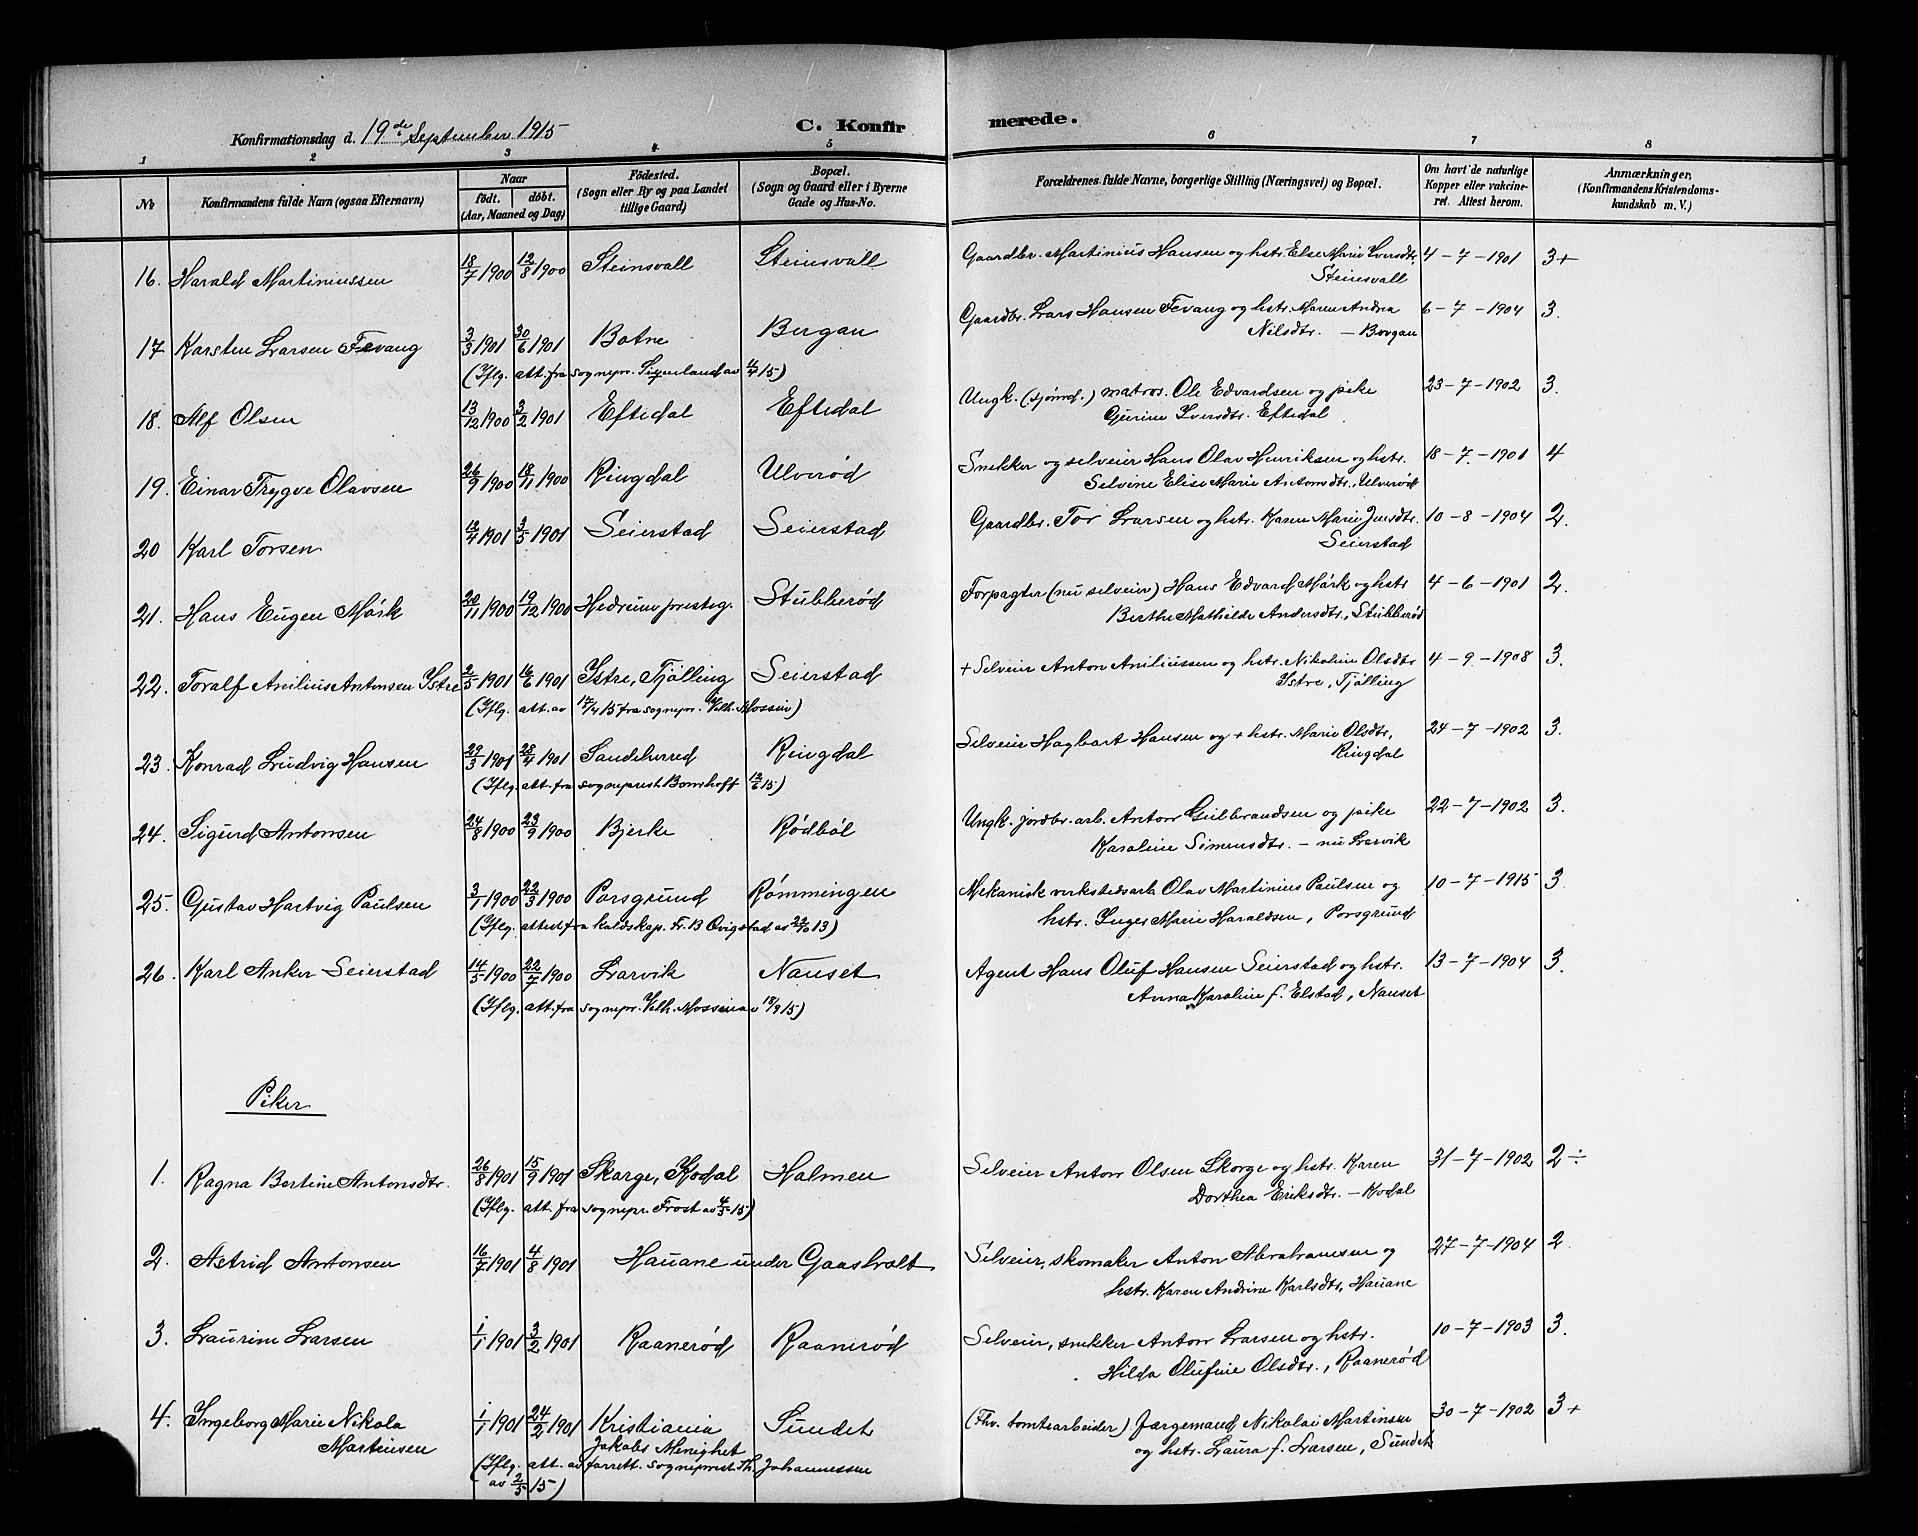 Konfirmationsdag d. 19de September 1915
C. Konfirmerede.
1 2 3 4 5 6 7 8
No Konfirmandens fulde Navn (ogsaa Efternavn) Naar født. døbt. (Aar, Maaned og Dag) Födested. (Sogn eller By og paa Landet tillige Gaard) Bopæl. (Sogn og Gaard eller i Byerne Gade og Hus-No. Forældrenes fulde Navne, borgerlige Stilling (Næringsvei) og Bopæl. Om havt de naturlige Kopper eller vakcineret. Attest herom. Anmærkninger, (Konfirmandens Kristendomskundskab m. V.)
16. Harald Martiniussen 18/7 1900 12/8 1900 Steinsvall Steinsvall Gaardbr. Martinius Hansen og hstr. Else Marie Iversdtr. 4-7-1901 3+
Steinsvall
17 Karsten Larsen Fevang 3/3 1901 30/6 1901 Botne Bergan Gaardbr. Lars Hansen Fevang og hstr. Maren Andrea 6-7-1904 3.
Nilsdtr. - Borgan
(Iflg. att. fra sognepr. 15)
18. Alf Olsen 13/12 1900 3/2 1901 Eftedal Eftedal Ungk. (sjömd.) matros. Ole Edvardsen og pike 23-7-1902 3.
Gurine Iversdtr. Eftedal
19. Einar Trygve Olavsen 26/9 1900 18/11 1900 Ringdal Ulverød Snekker og selveier Hans Olav Henriksen og hstr. 18-7-1901 4
Selvine Elise Marie Antonsdtr., Ulverød
20 Karl Torsen 12/4 1901 3/5 1901 Seierstad Seierstad Gaardbr. Tor Larsen og hstr. Karen Marie Jensdtr. 10-8-1904 2.
Seierstad
21. Hans Eugen Mørk 20/11 1900 19/12 1900 Hedrum presteg. Stubberød Forpagter (nu selveier) Hans Edvard Mørk og hstr 4-6-1901 2.
Berthe Mathilde Andersdtr., Stubberød
22. Toralf Anilius Antonsen Istre 2/5 1901 16/6 1901 Istre, Tjølling Seierstad + Selveier Anton Aniliussen og hstr. Nikoline Olsdtr 4-9-1908 3.
Istre, Tjølling
(Iflg. att. av 17/4 15 fra sognepr. Vilh. Mossin)
23. Konrad Ludvig Hansen 29/3 1901 28/4 1901 Sandeherred Ringdal Selveier Hagbart Hansen og + hstr. Marie Olsdtr, 24-7-1902 3.
Ringdal
(Iflg. att. fra sogneprest Bomhoff 12/6 15)
24. Sigurd Antonsen 24/8 1900 23/9 1900 Bjerke Rødbøl Ungk. jordbr. arb. Anton Gulbrandsen og pike 22-7-1902 3.
Karoline Simensdtr. - nu Larvik
25. Gustav Hartvig Paulsen 3/1 1900 22/3 1900 Porsgrund Rømmingen Mekanisk verkstedsarb. Olav Martinius Paulsen og 10-7-1915 3.
hstr. Inger Marie Haraldsen, Porsgrund
(Iflg. attest fra kaldskap. Fr. B Qvigstad av 22/6 13)
26. Karl Anker Seierstad 14/5 1900 22/7 1900 Larvik Nauset Agent Hans Oluf Hansen Seierstad og hstr. 13-7-1904 3.
Anna Karoline f. Elstad, Nauset
(Iflg. att. fra sognepr. Vilh. Mossin av 18/9 15)
Piker
1. Ragna Bertine Antonsdtr. 26/8 1901 15/9 1901 Skarge, Kodal Holmen Selveier Anton Olsen Skorge og hstr. Karen 31-7-1902 2÷
Dorthea Eriksdtr. - Kodal
(Iflg. att. fra sognepr. Frost av 4/5 15)
2. Astrid Antonsen 16/7 1901 4/8 1901 Hauane under Gaasholt Selveier, skomaker Anton Abrahamsen og 27-7-1904 2.
hstr. Karen Andrine Karlsdtr, Hauane
3. Laurine Larsen 1/1 1901 3/2 1901 Raanerød Raanerød Selveier, snekker Anton Larsen og hstr. 10-7-1903 3.
Hilda Olufine Olsdtr., Raanerød
4. Ingeborg Marie Nikola 1/1 1901 24/2 1901 Kristiania Sundet (Fhv. tomtearbeider) Færgemand Nikolai Martinsen 30-7-1902 3+
Martinsen Jakobs Menighet og hstr. Laura f. Larsen, Sundet
(Iflg. att. av forrett. sogneprest Th. Johannessen
av 2/5 15)